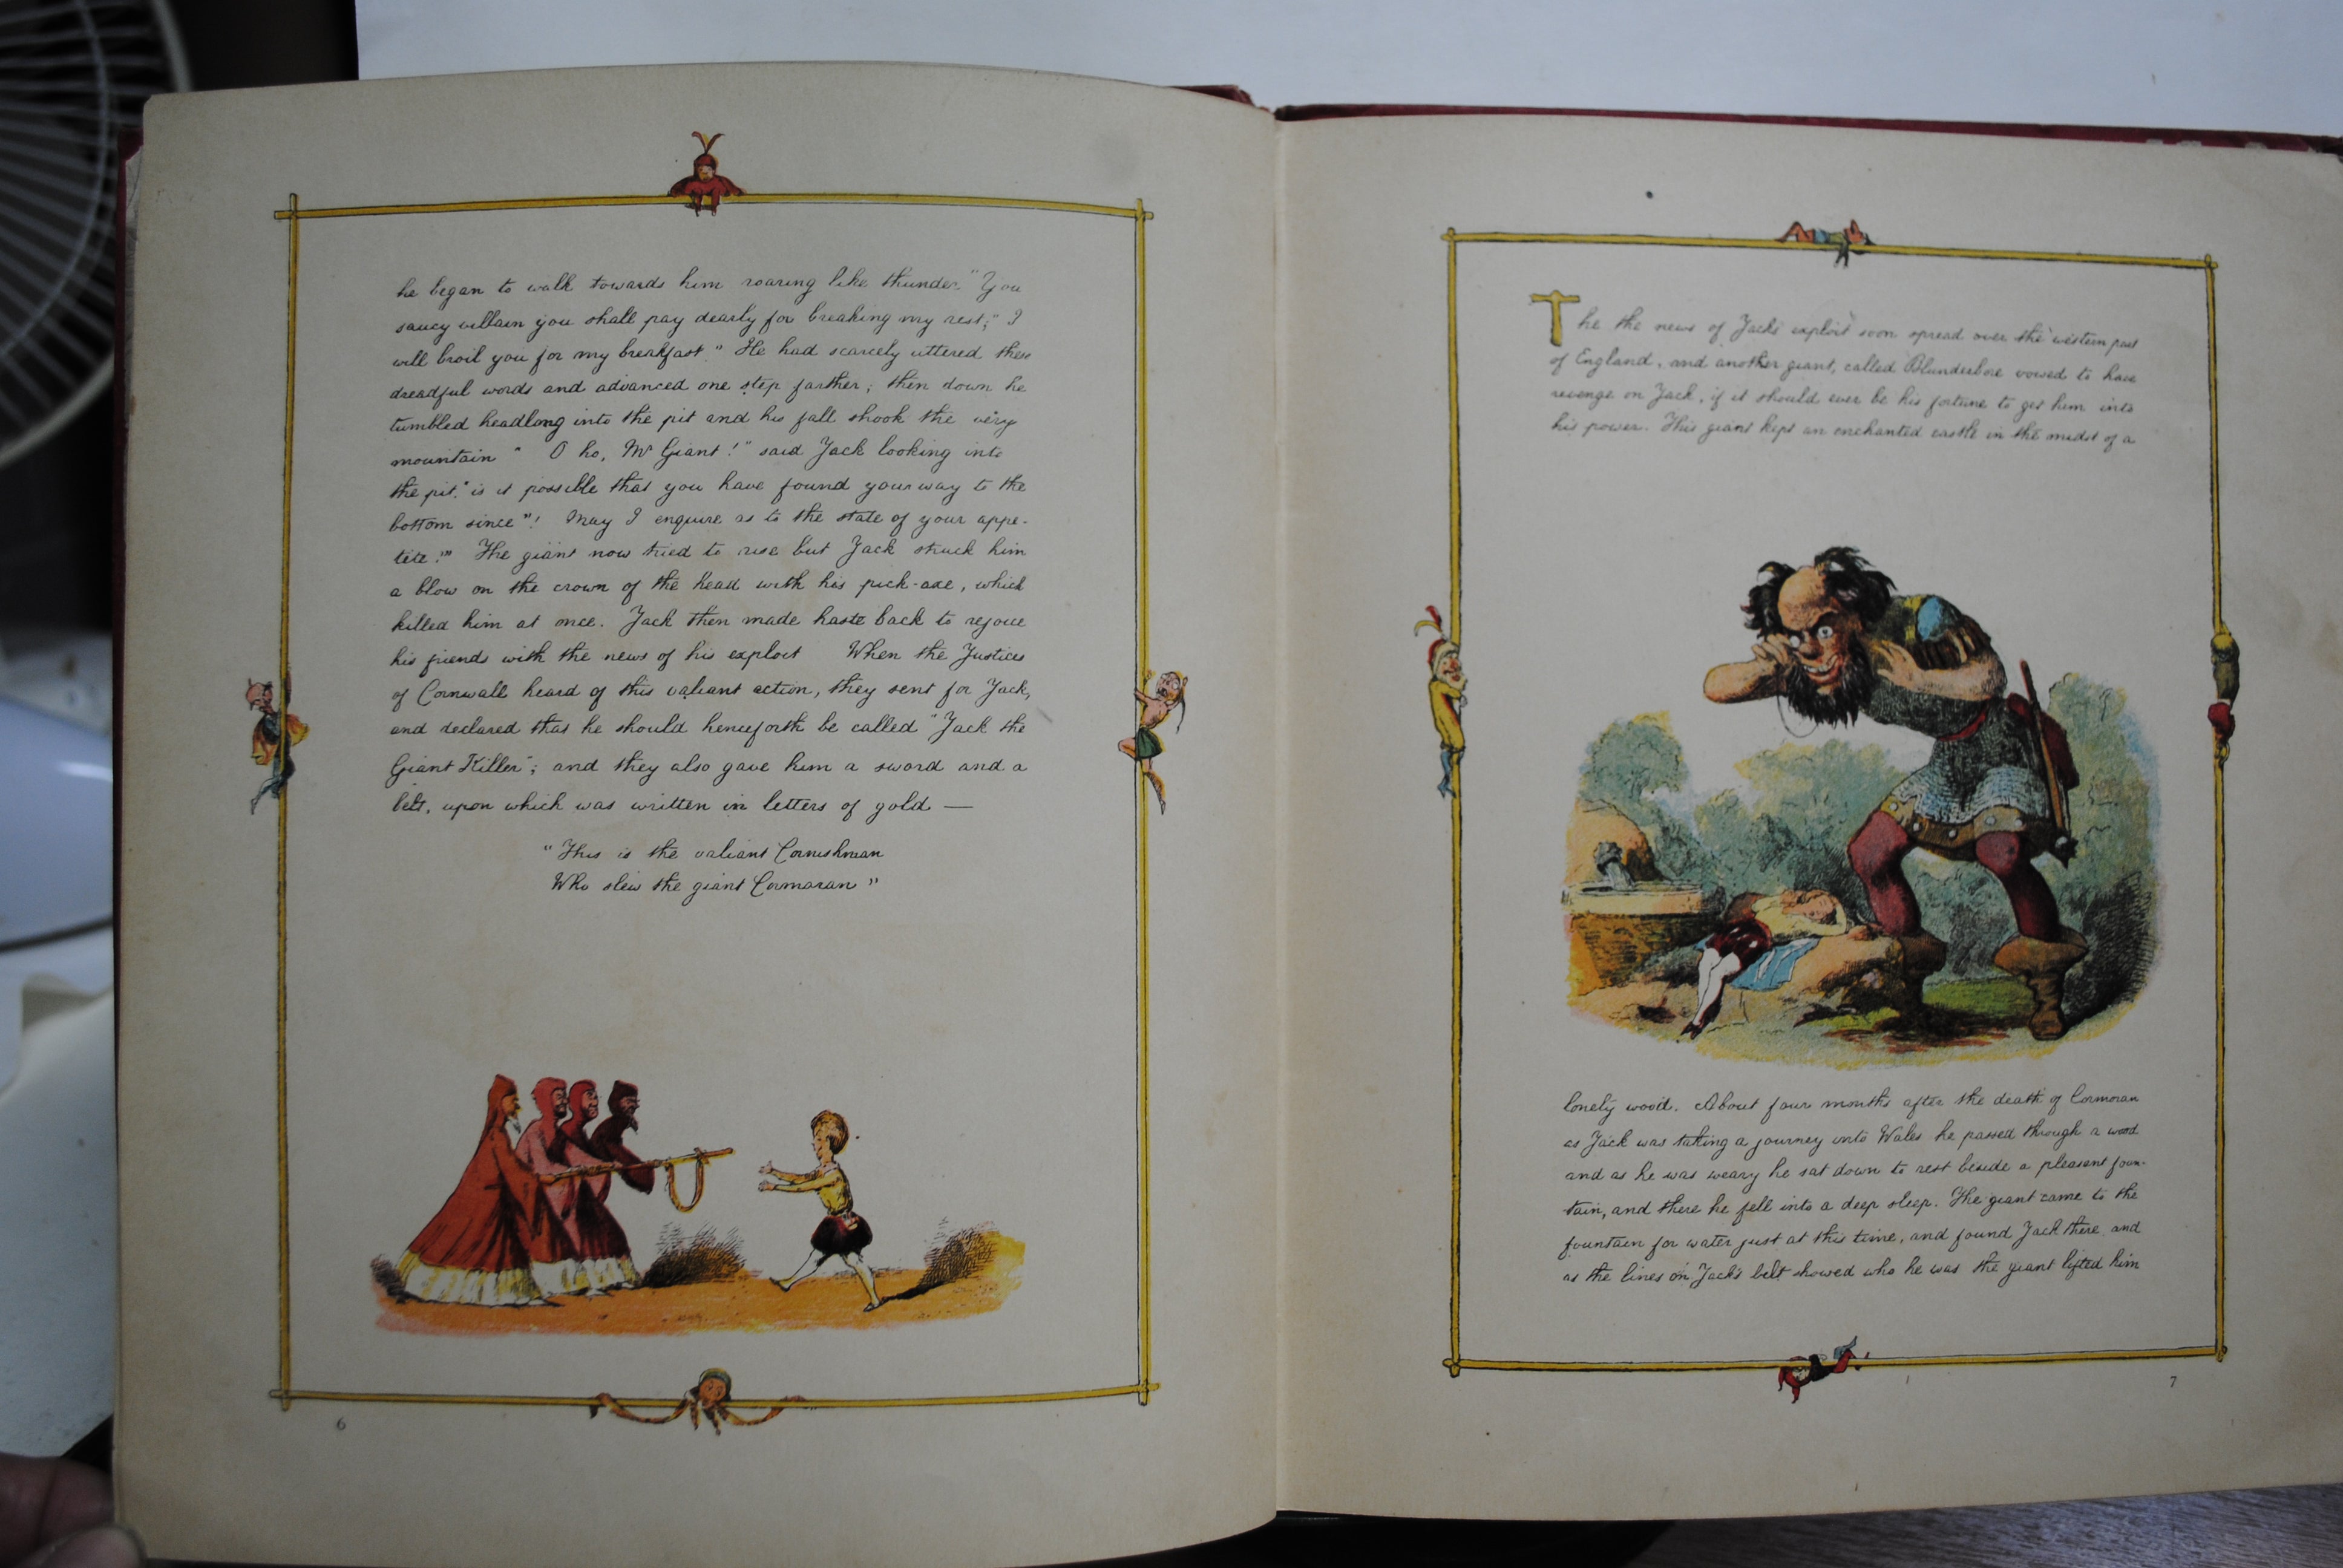 he began to walk towards him roaring like thunder "You
saucy villain you shall pay dearly for breaking my rest;" I
will broil you for my breakfast." He had scarcely uttered these
dreadful words and advanced one step farther; then down he
tumbled headlong into the pit and his fall shook the very
mountain " O ho, Mr Giant!" said Jack looking into
the pit." is it possible that you have found your way to the
bottom since"! May I enquire as to the state of your appe-
tite?" The giant now tried to rise but Jack struck him
a blow on the crown of the head with his pick-axe, which
killed him at once. Jack then made haste back to rejoice
his friends with the news of his exploit When the Justices
of Cornwall heard of this valiant action, they sent for Jack,
and declared that he should henceforth be called "Jack the
Giant Killer"; and they also gave him a sword and a
belt, upon which was written in letters of gold —
"This is the valiant Cornishman
Who slew the giant Cormoran"
6
The the news of Jack's exploit soon spread over the western part
of England, and another giant, called Blunderbore vowed to have
revenge on Jack, if it should ever be his fortune to get him into
his power. This giant kept an enchanted castle in the midst of a
lonely wood. About four months after the death of Cormoran
as Jack was taking a journey into Wales he passed through a wood
and as he was weary he sat down to rest beside a pleasant foun-
tain, and there he fell into a deep sleep. The giant came to the
fountain for water just at this time, and found Jack there and
as the lines on Jack's belt showed who he was the giant lifted him
7